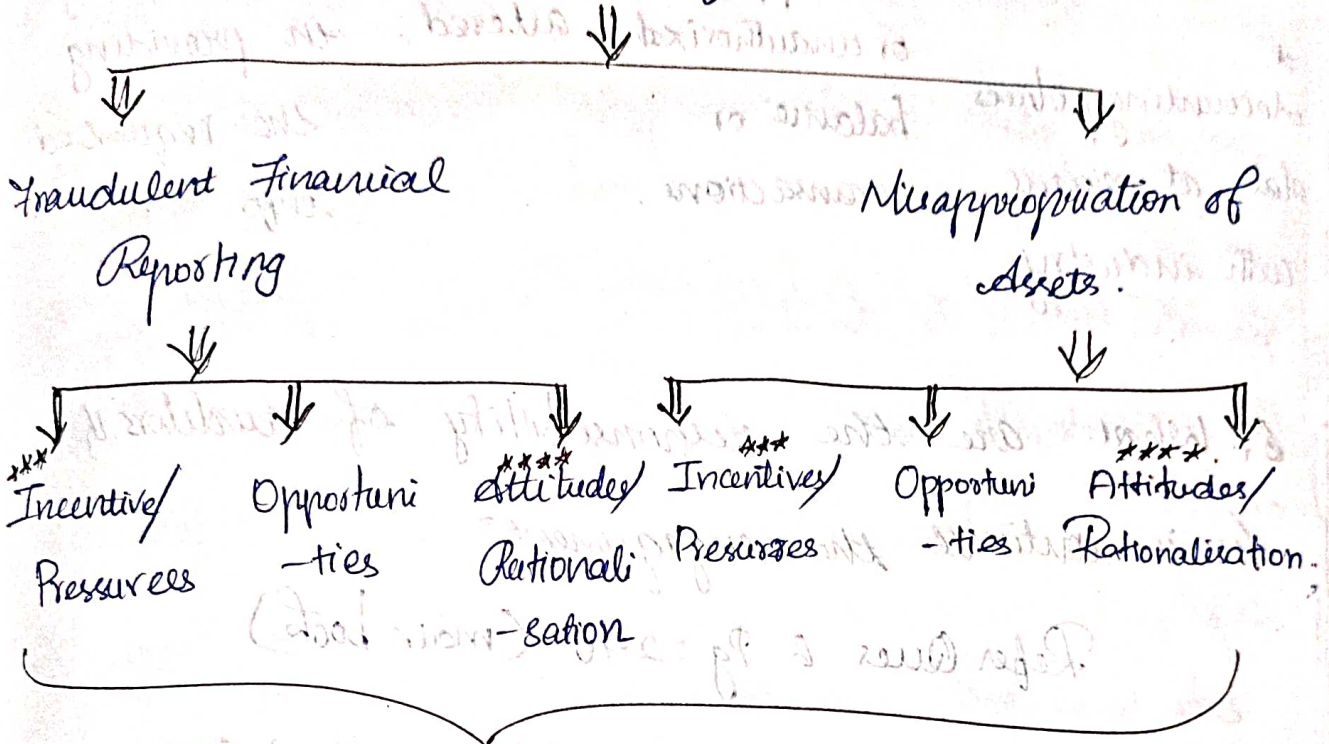 Fraudulent Financial
Reporting
Misappropriation of
Assets.
***
Incentive/
Pressurees
Opportuni
-ties
****
Attitudes/
Rationali
-sation
***
Incentives/
Presurres
Opportuni
-ties
****.
Attitudes/
Rationalisation.